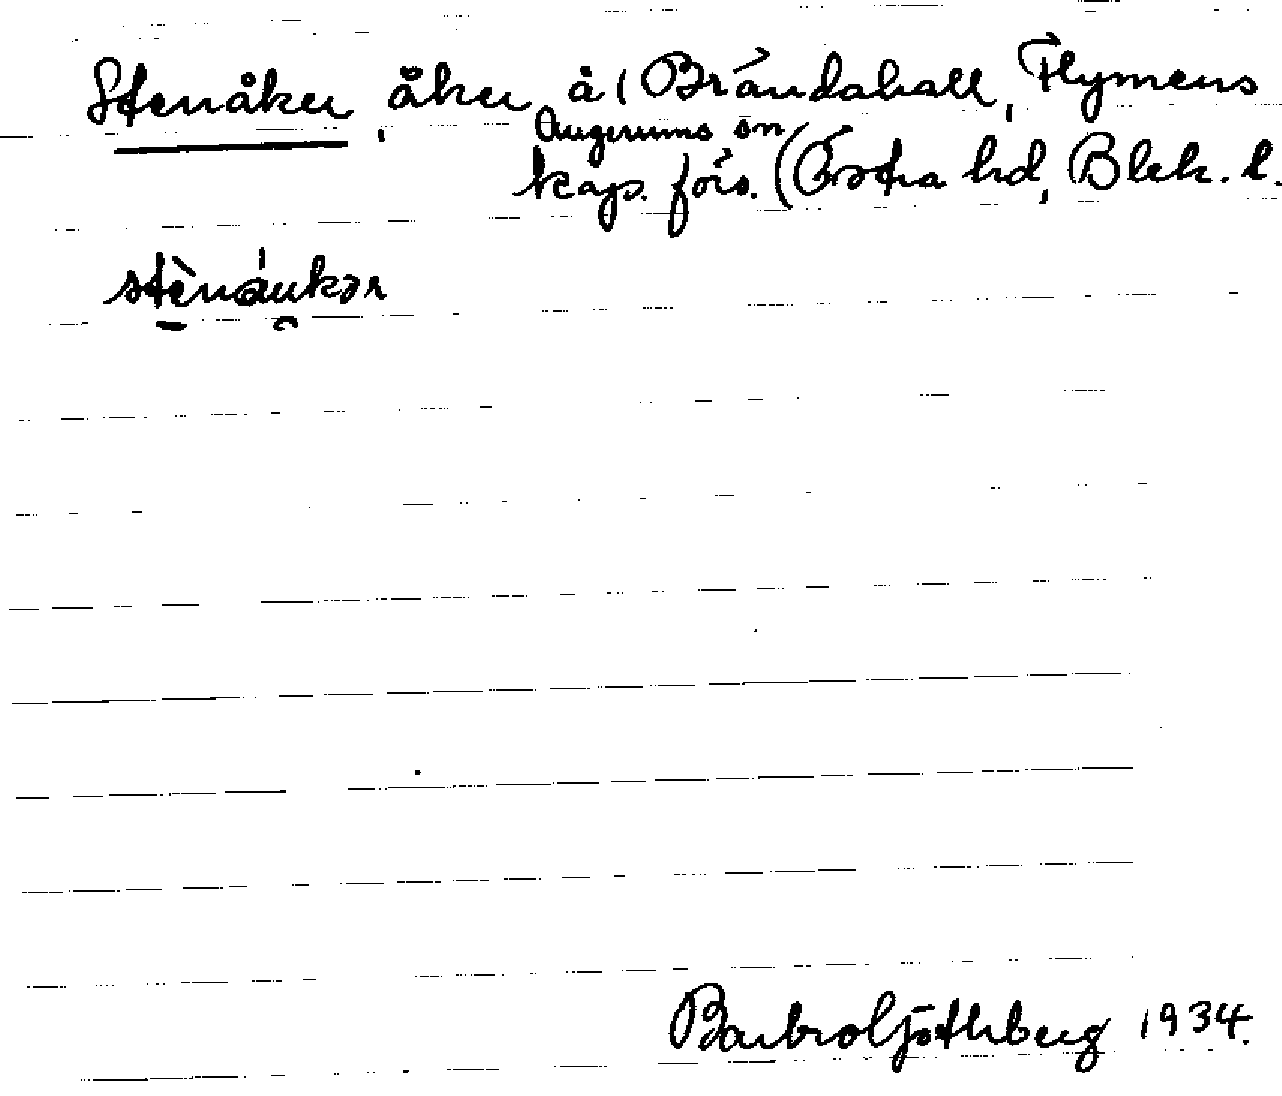 Stenåker, åker, å 1 Brändahall, Flymens
Augerums sn
kap. förs. (Östra hd, Blek. l.
stènáukər
Barbro Götlberg 1934.